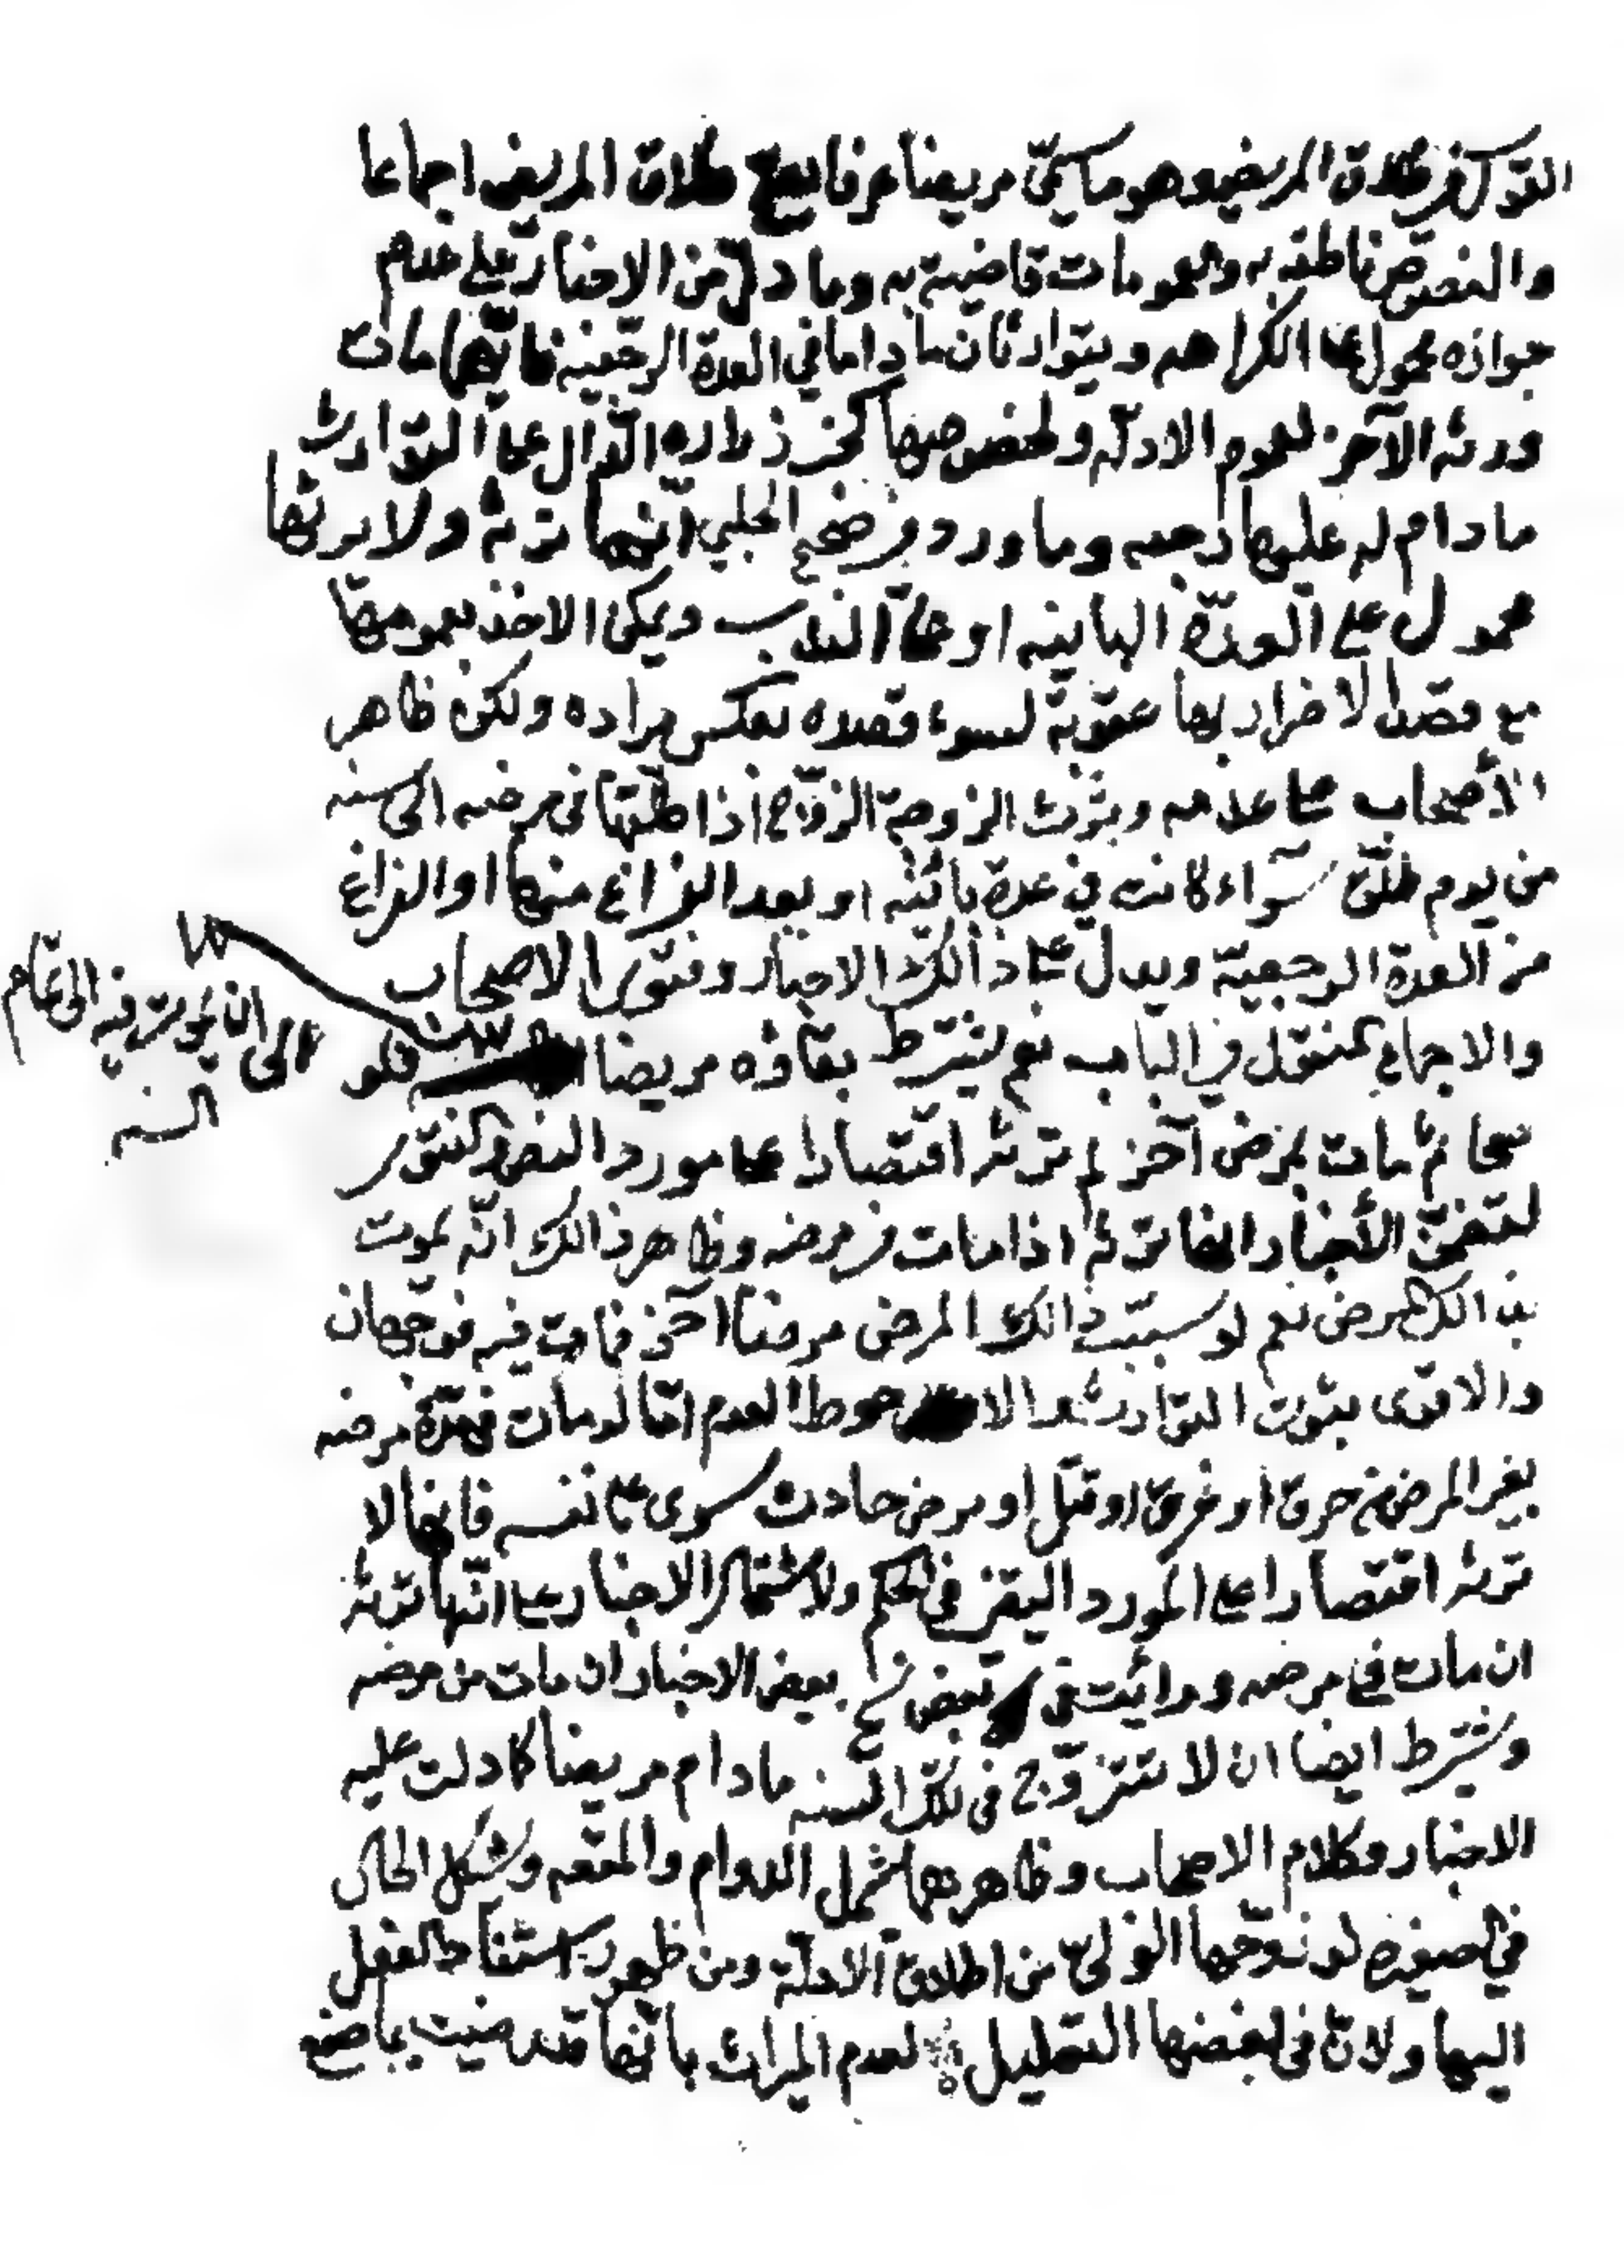 القول في طلاق المريض وهو ما يسمى مريضا عرفا يصح طلاق المريض اجماعا
والنصوص ناطقة به والعمومات قاضية به وما دل من الاخبار على عدم
جوازه محمول على الكراهه ويتوارثان ما داما في العدة الرجعية فايهما مات
ورثه الآخر لعموم الادلة ولخصوصها كخبر زراره الدال على التوارث
ما دام له عليها رجعه وما ورد في صحيح الحلبي انها ترثه ولا يرثها
محمول على العدة الباينه او على الندب ويمكن الاخذ بعمومها
مع قصد الاضرار بها عقوبة لسوء قصده بعكس مراده ولكن ظاهر
الأصحاب على عدمه وترث الزوجة الزوج اذا طلقها في مرضه الى سنه
من يوم طلق سواء كانت في عدة بائنه او بعد الفراغ منها او الفراغ
من العدة الرجعية ويدل على ذالك الاخبار وفتوى الاصحاب
والاجماع المنقول في الباب نعم يشترط بقاؤه مريضا فلو
الى ان يموت فيه الى تمام
السنه
صحا ثم مات بمرض آخر لم ترثه اقتصارا على مورد النص والفتوى
لتضمن الأخبار انها ترثه اذا مات في مرضه وظاهر ذالك انه يموت
بذالك المرض نعم لو سبب ذالك المرض مرضا آخر فمات فيه فوجهان
والاقوى ثبوت التوارث والاحوط العدم اما لو مات في مدة مرضه
بغير المرض من حرق او غرق او قتل او مرض حادث سوى ما نفسه فانها لا
ترثه اقتصارا على المورد اليقين في الحكم ولاشتمال الاخبار على انها ترثه
ان مات في مرضه ورأيت في بعض نسخ بعض الاخبار ان مات من مرضه
ويشترط ايضا ان لا تتزوج في تلك السنه ما دام مريضا كما دلت عليه
الاخبار وكلام الاصحاب وظاهرهما يشمل الدوام والمتعه ويشكل الحال
في الصغيره لو زوجها الولي من اطلاق الادلة ومن ظهور استناد الفعل
اليها ولان في بعضها التعليل لعدم الميراث بانها قد رضيت بما صنع